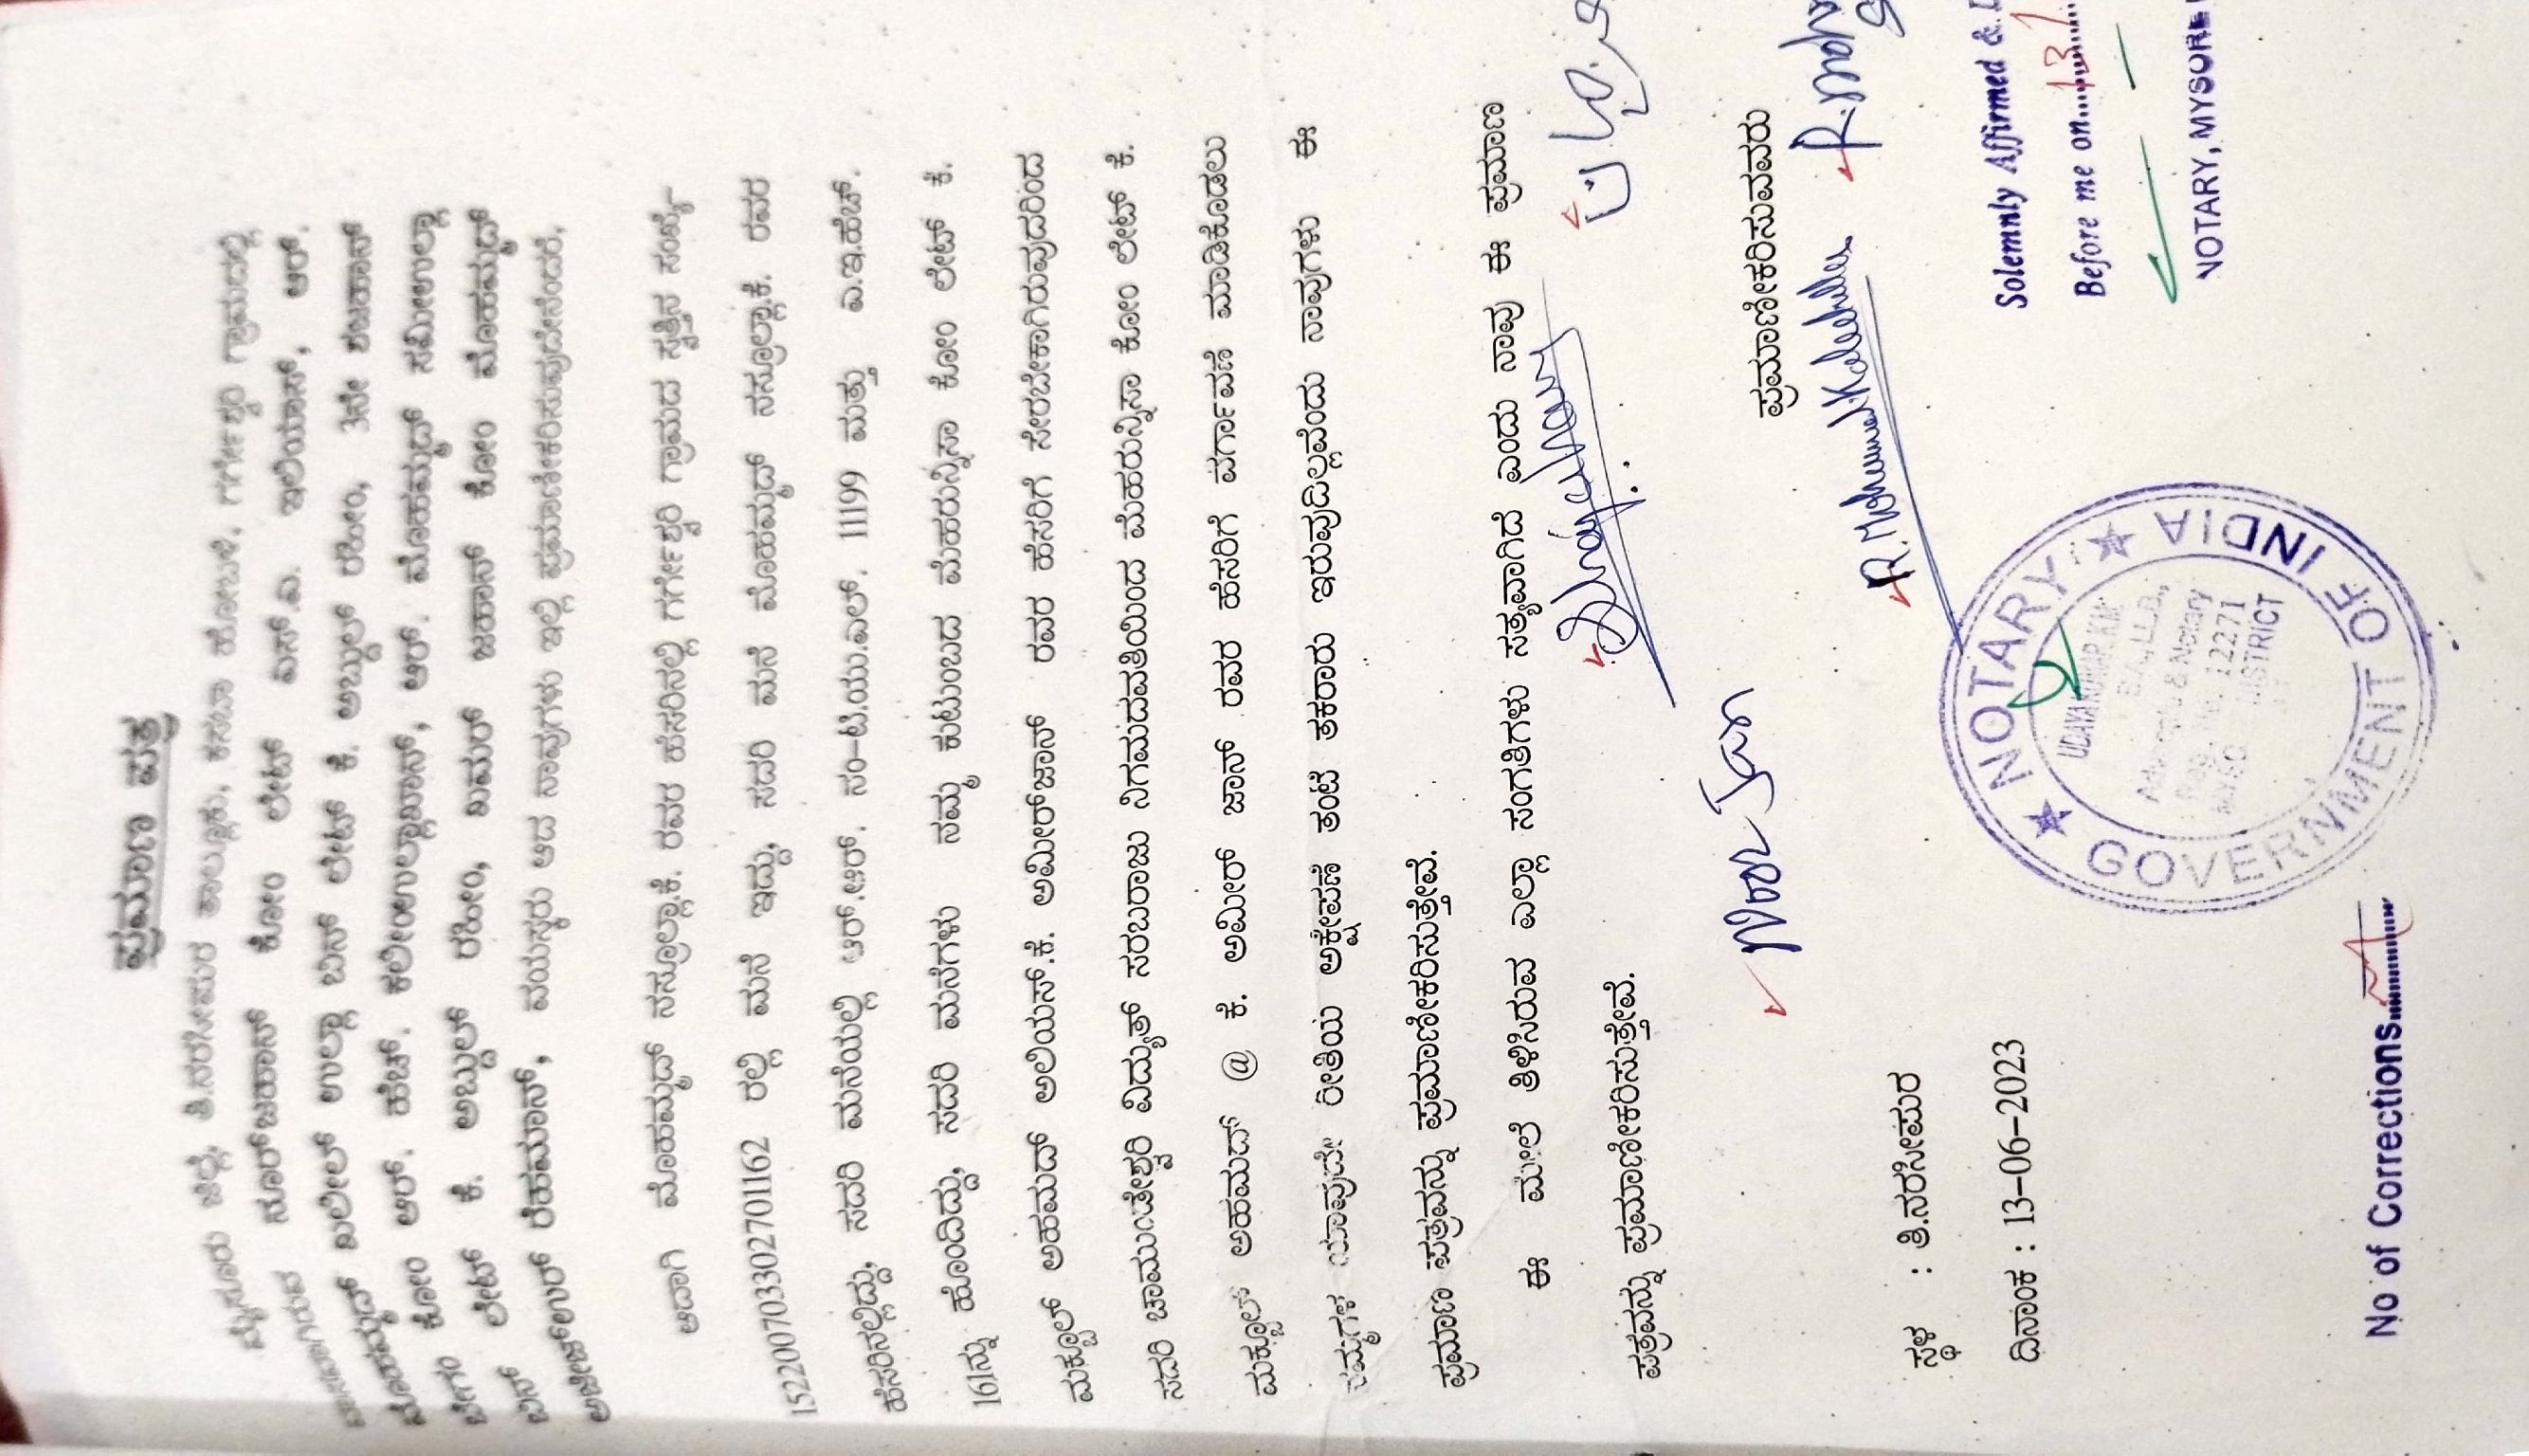 ಪ್ರಮಾಣ ಪತ್ರ
ಮೈಸೂರು ಜಿಲ್ಲೆ, ತಿ.ನರಸೀಪುರ ತಾಲ್ಲೂಕು, ಕಸಬಾ ಹೋಬಳಿ, ಗರ್ಗೇಶ್ವರಿ ಗ್ರಾಮದಲ್ಲಿ
ನೂರ್‌ಜಹಾನ್ ಕೋಂ ಲೇಟ್ ಎಸ್.ಎ. ಇಲಿಯಾಸ್, ಆರ್.
ಮೊಹಮ್ಮದ್ ಖಲೀಲ್ ಉಲ್ಲಾ ಬಿನ್ ಲೇಟ್ ಕೆ. ಅಬ್ದುಲ್ ರಹೀಂ, 3ನೇ ಶಬಹಾನ್
ಕೋಂ ಆರ್. ಹೆಚ್. ಕಲೀಂಉಲ್ಲಾಖಾನ್, ಆರ್. ಮೊಹಮ್ಮದ್ ಸಮೀಉಲ್ಲಾ
ಬಿನ್ ಲೇಟ್ ಕೆ. ಅಬ್ದುಲ್ ರಹೀಂ, ಖಮರ್ ಜಹಾನ್ ಕೋಂ ಮೊಹಮ್ಮದ್
ಅಜೀಜ್‌ಉರ್ ರೆಹಮಾನ್, ವಯಸ್ಕರು ಆದ ನಾವುಗಳು ಇಲ್ಲಿ ಪ್ರಮಾಣೀಕರಿಸುವುದೇನೆಂದರೆ,
ಅದಾಗಿ ಮೊಹಮ್ಮದ್ ನಸ್ರುಲ್ಲಾ.ಕೆ. ರವರ ಹೆಸರಿನಲ್ಲಿ ಗರ್ಗೇಶ್ವರಿ ಗ್ರಾಮದ ಸ್ವತ್ತಿನ ಸಂಖ್ಯೆ-
152200703302701162 ರಲ್ಲಿ ಮನೆ ಇದ್ದು, ಸದರಿ ಮನೆ ಮೊಹಮ್ಮದ್ ನಸ್ರುಲ್ಲಾ.ಕೆ. ರವರ
ಹೆಸರಿನಲ್ಲಿದ್ದು, ಸದರಿ ಮನೆಯಲ್ಲಿ ಆರ್.ಆರ್. ನಂ-ಟಿ.ಯು.ಎಲ್. 11199 ಮತ್ತು ಎ.ಇ.ಹೆಚ್.
161ನ್ನು ಹೊಂದಿದ್ದು, ಸದರಿ ಮನೆಗಳು ನಮ್ಮ ಕುಟುಂಬದ ಮೆಹರುನ್ನಿಸಾ ಕೋಂ ಲೇಟ್ ಕೆ.
ಮಕ್ಬೂಲ್ ಅಹಮದ್ ಅಲಿಯಸ್.ಕೆ. ಅಮೀರ್‌ಜಾನ್ ರವರ ಹೆಸರಿಗೆ ಸೇರಬೇಕಾಗಿರುವುದರಿಂದ
ಸದರಿ ಚಾಮುಂಡೇಶ್ವರಿ ವಿದ್ಯುತ್ ಸರಬರಾಜು ನಿಗಮದವತಿಯಿಂದ ಮೆಹರುನ್ನಿಸಾ ಕೋಂ ಲೇಟ್ ಕೆ.
ಮಕ್ಬೂಲ್ ಅಹಮದ್ @ ಕೆ. ಅಮೀರ್ ಜಾನ್ ರವರ ಹೆಸರಿಗೆ ವರ್ಗಾವಣೆ ಮಾಡಿಕೊಡಲು
ನಮ್ಮಗಳ ಯಾವುದೇ ರೀತಿಯ ಅಕ್ಷೇಪಣೆ ತಂಟೆ ತಕರಾರು ಇರುವುದಿಲ್ಲವೆಂದು ನಾವುಗಳು ಈ
ಪ್ರಮಾಣ ಪತ್ರವನ್ನು ಪ್ರಮಾಣೀಕರಿಸುತ್ತೇವೆ.
ಈ ಮೇಲೆ ತಿಳಿಸಿರುವ ಎಲ್ಲಾ ಸಂಗತಿಗಳು ಸತ್ಯವಾಗಿದೆ ಎಂದು ನಾವು ಈ ಪ್ರಮಾಣ
ಪತ್ರವನ್ನು ಪ್ರಮಾಣೀಕರಿಸುತ್ತೇವೆ.
Noor Jan
ಪ್ರಮಾಣೀಕರಿಸುವವರು
ಸ್ಥಳ : ತಿ.ನರಸೀಪುರ
ದಿನಾಂಕ : 13-06-2023
Solemnly Affirmed &
Before me on 13
NOTARY, MYSORE
NOTARY
GOVERNMENT OF INDIA
UDAYA KUMAR. K.M.
B.A., LL.B.,
Advocate & Notary
Reg. No. 12271
DISTRICT
No of Corrections